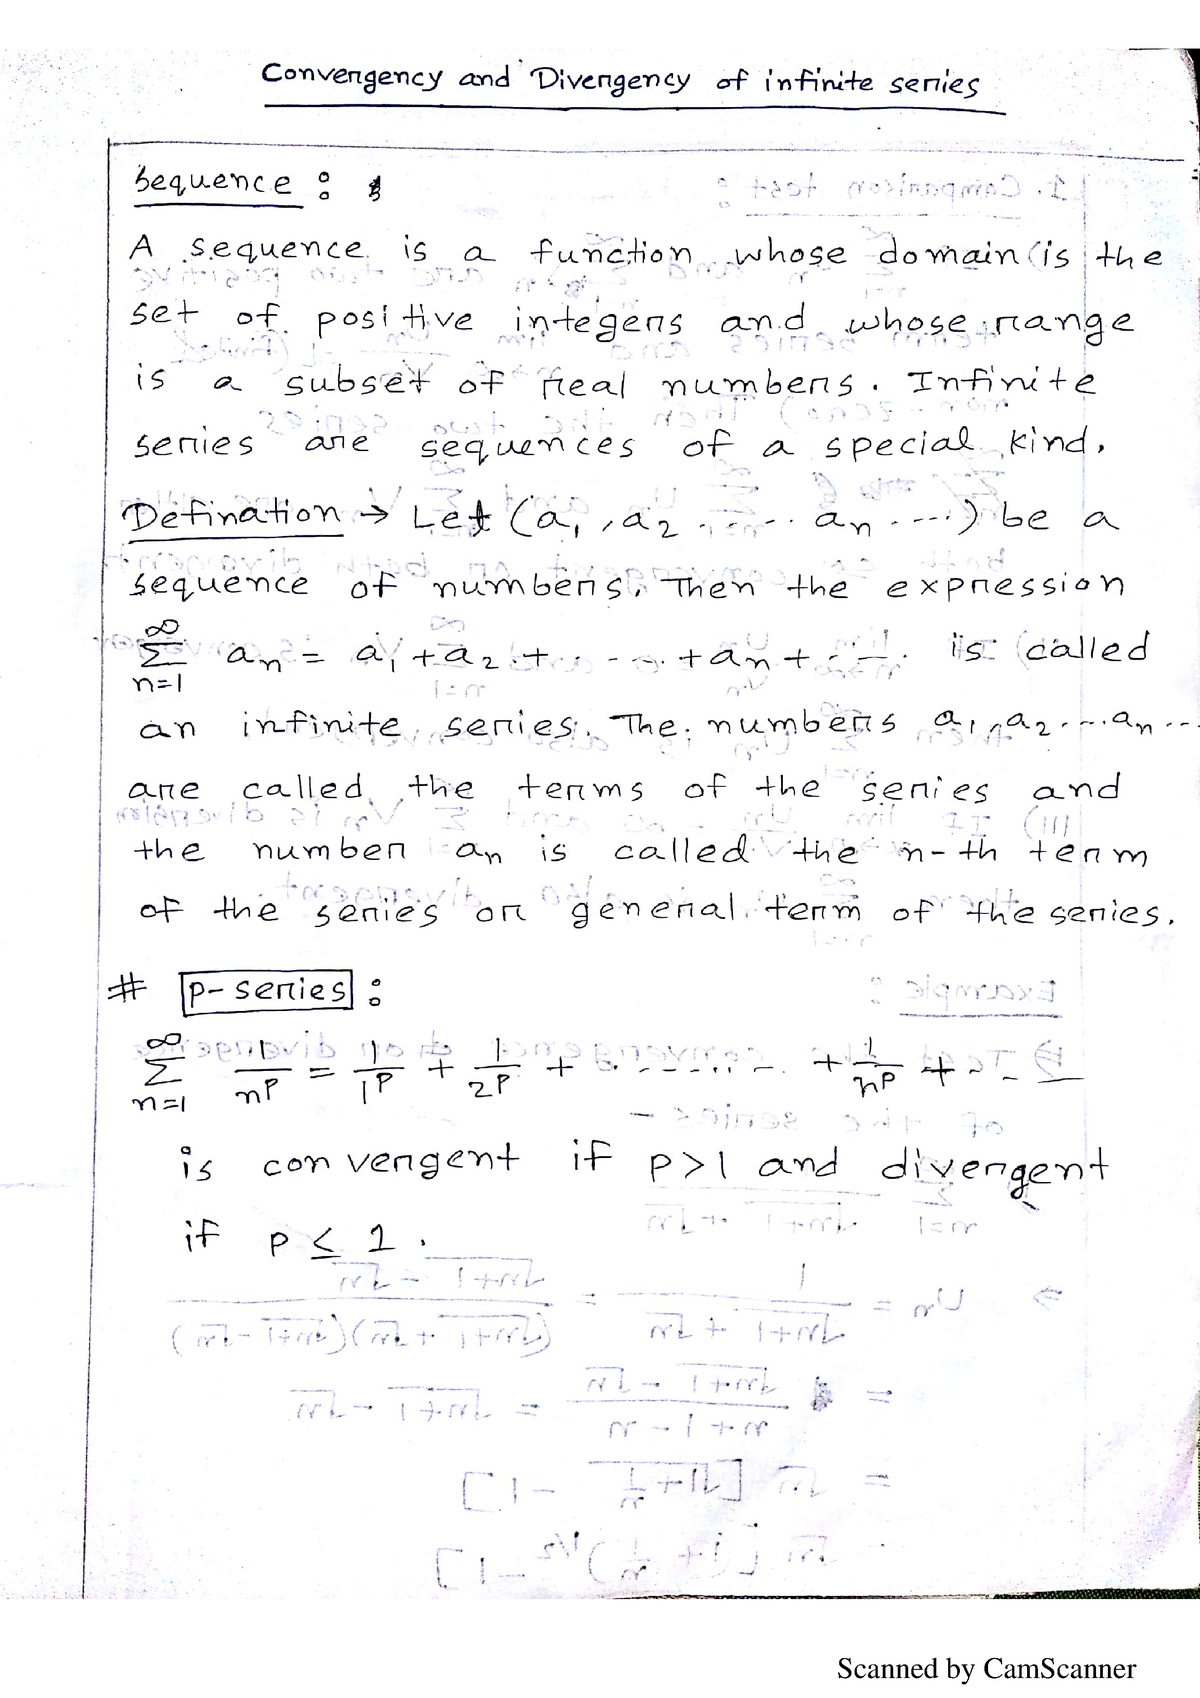 Convergency and Divergency of infinite series
Sequence :
A sequence is a function whose domain is the
set of positive integers and whose range
is a subset of real numbers. Infinite
series are sequences of a special kind.
Defination → Let (a₁, a₂, ---- aₙ ----) be a
sequence of numbers. Then the expression
∑_{n=1}^{∞} aₙ = a₁ + a₂ + ---- + aₙ + ---. is called
an infinite series. The numbers a₁, a₂ ---. aₙ ---
are called the terms of the series and
the number aₙ is called the n-th term
of the series or general term of the series.
# p-series :
∑_{n=1}^{∞} 1/n^p = 1/1^p + 1/2^p + -------- + 1/n^p + ---
is convergent if p>1 and divergent
if p ≤ 1.
Scanned by CamScanner